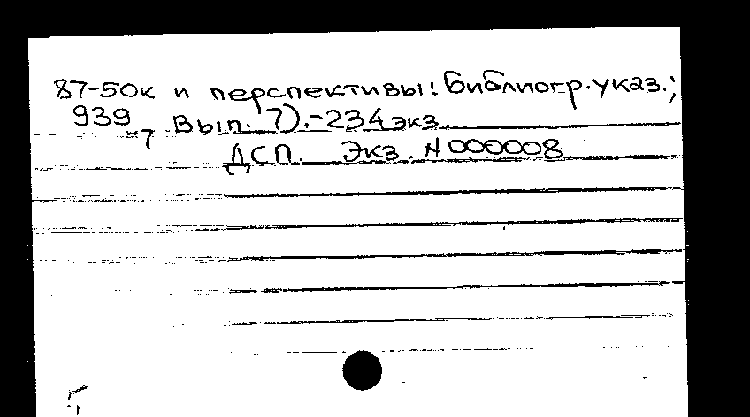 87-50к и перспективы: Библиогр. указ.;
939
-7 Вып. 7).-234экз.
ДСП. Экз. N000008